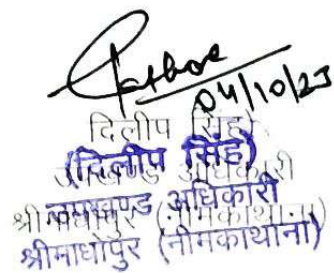 04/10/23
दिलीप सिंह
(दिलीप सिंह)
उपखण्ड अधिकारी
उपखण्ड अधिकारी
श्रीमाधोपुर (नीमकाथाना)
श्रीमाधोपुर (नीमकाथाना)